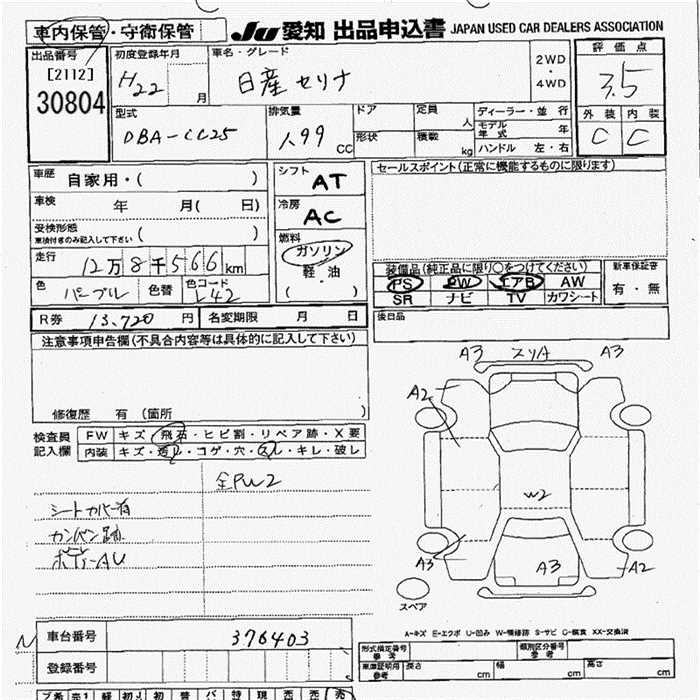 車内保管・守衛保管 JU 愛知 出品申込書 JAPAN USED CAR DEALERS ASSOCIATION
出品番号 初度登録年月 車名・グレード 2WD 評価点
[2112] H22 月 日産 セリナ ・ 3.5
30804 4WD
型式 排気量 ドア 定員 ディーラー・並 行 外装 内装
DBA-CC25 1.99 CC 人 モデル年式 年 C C
形状 積載 kg ハンドル 左・右
車歴 自家用・( ) シフト AT セールスポイント(正常に機能するものに限ります)
車検 年 月( 日) 冷房 AC
受検形態 ( )
車検付きのみ記入して下さい
燃料
走行 12万8千566km ガソリン 装備品(純正品に限り○をつけてください) 新車保証書
軽・油 PS PW エアB AW 有・無
色 パープル 色替 色コード L42 ( ) SR ナビ TV カワシート
R券 13,720 円 名変期限 月 日 後日品
注意事項申告欄(不具合内容等は具体的に記入して下さい)
A3 スリA A3
A2
修復歴 有 (箇所 )
検査員 FW キズ・飛石・ヒビ割・リペア跡・X要
記入欄 内装 キズ・汚れ・コゲ・穴・スレ・キレ・破レ
全PW2
W2
シートカバー有
カンバン跡
ボディーAU
A3 A3 A2
スペア
A-キズ E-エクボ U-凹み W-補修跡 S-サビ C-腐食 XX-交換済
車台番号 376403
形式指定番号 参考 類別区分番号 参考
登録番号 車庫証明用 参考 長さ cm 幅 cm 高さ cm